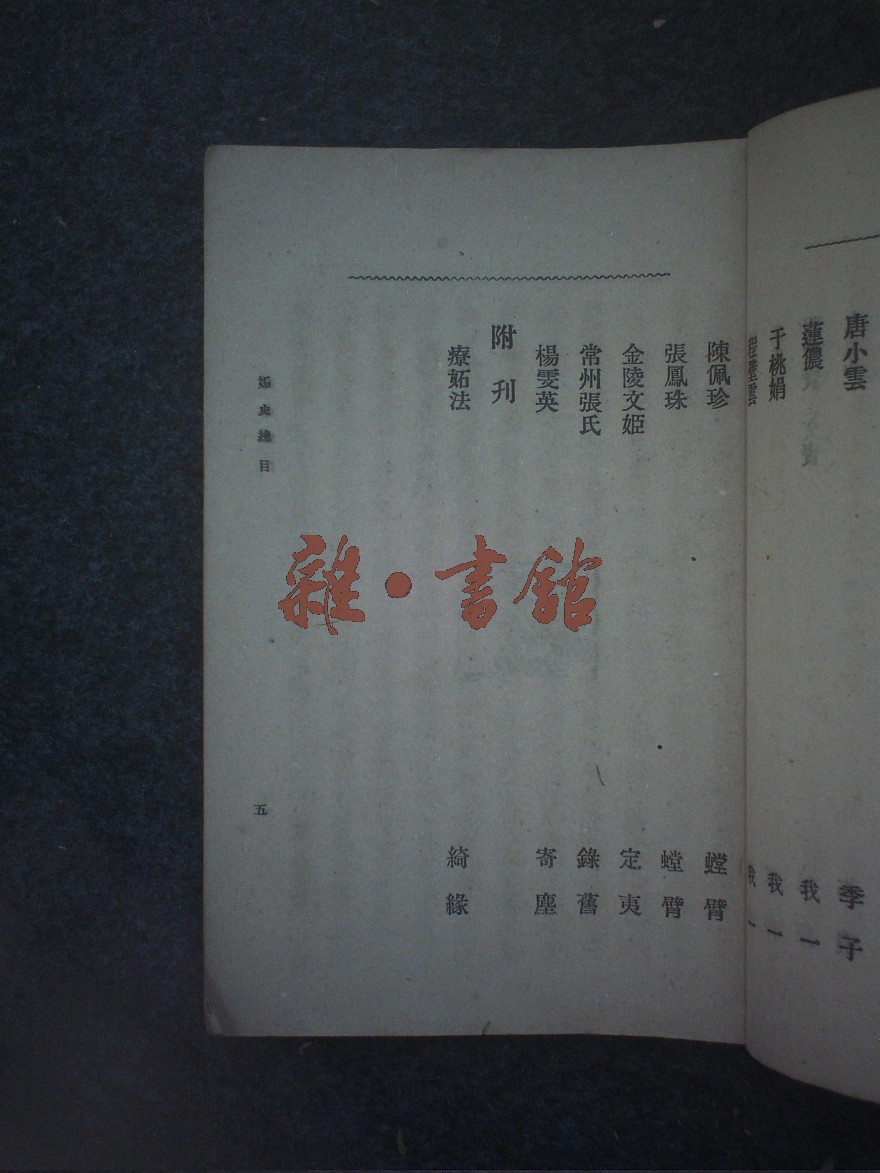 唐小雲 季子
蓮儂 我一
于桃娟 我一
我一
陳佩珍 螳臂
張鳳珠 螳臂
金陵文姬 定夷
常州張氏 錄舊
楊雯英 寄塵
附刊
療妬法 綺緣
史總目 五
雜·書館